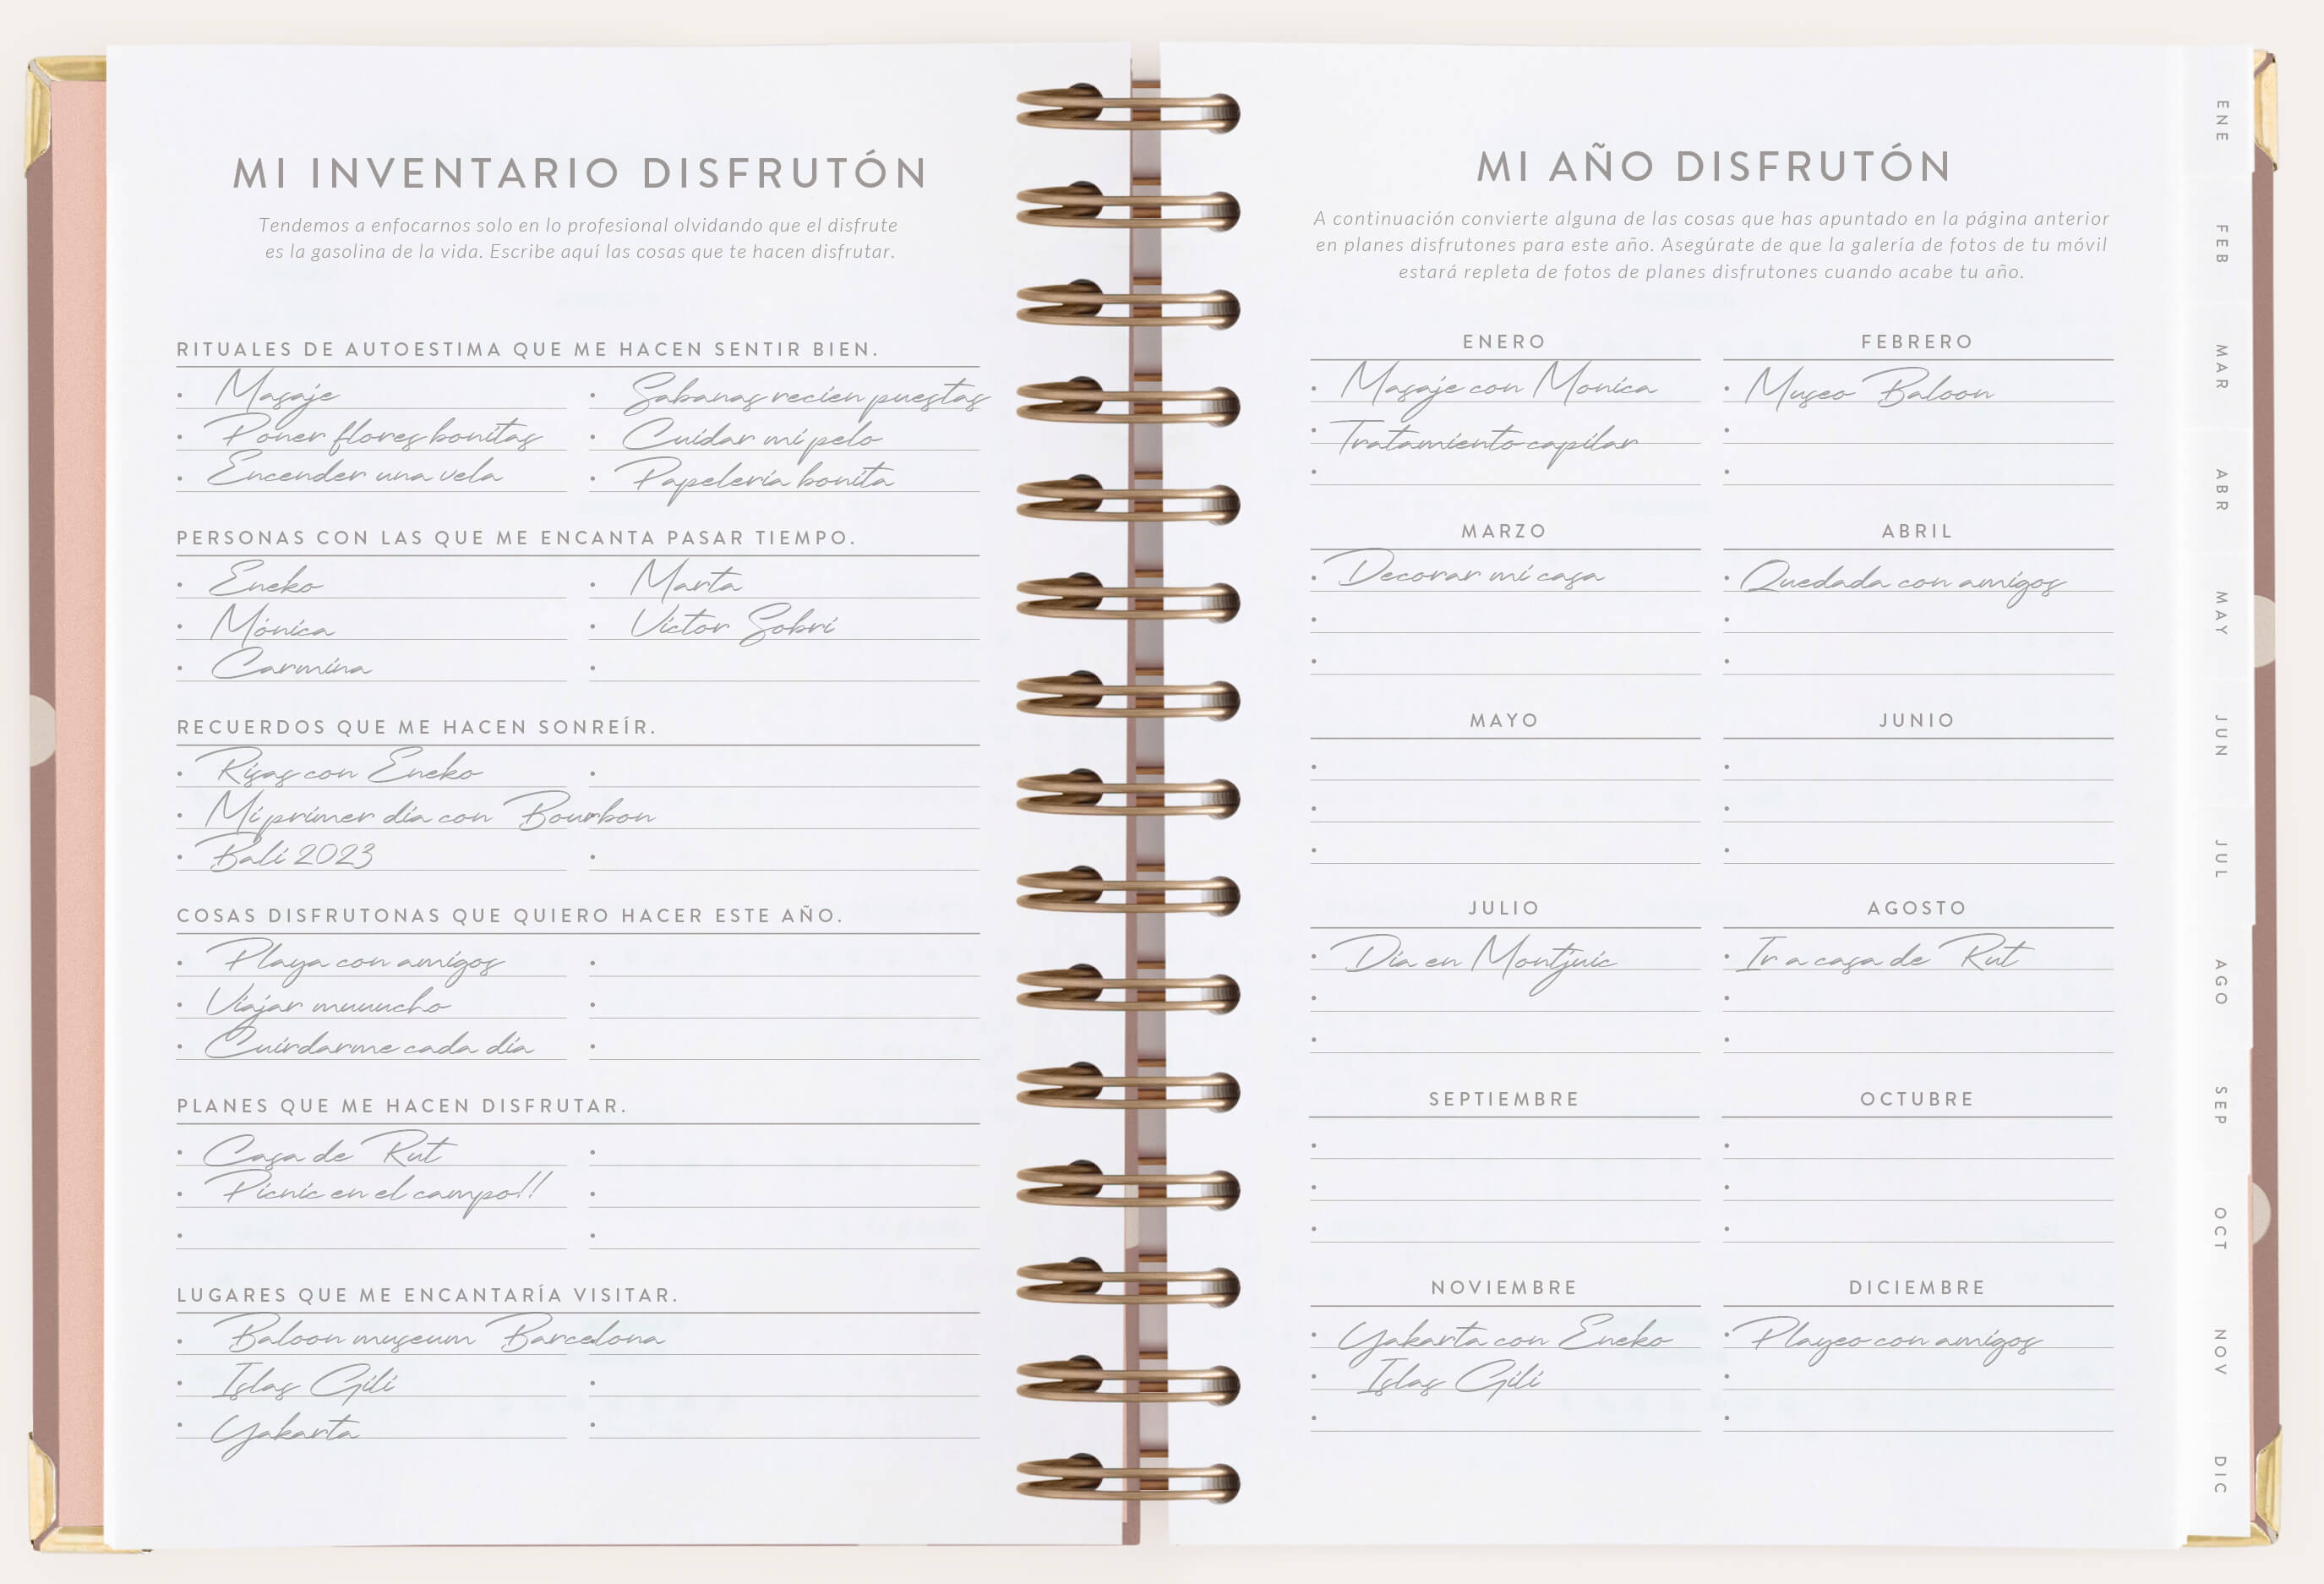 MI INVENTARIO DISFRUTÓN
Tendemos a enfocarnos solo en lo profesional olvidando que el disfrute
es la gasolina de la vida. Escribe aquí las cosas que te hacen disfrutar.
RITUALES DE AUTOESTIMA QUE ME HACEN SENTIR BIEN.
• Masaje • Sabanas recien puestas
• Poner flores bonitas • Cuidar mi pelo
• Encender una vela • Papelería bonita
PERSONAS CON LAS QUE ME ENCANTA PASAR TIEMPO.
• Eneko • Marta
• Mónica • Víctor Sobri
• Carmina •
RECUERDOS QUE ME HACEN SONREÍR.
• Risas con Eneko •
• Mi primer día con Bourbon
• Bali 2023 •
COSAS DISFRUTONAS QUE QUIERO HACER ESTE AÑO.
• Playa con amigos •
• Viajar muuucho •
• Cuirdarme cada día •
PLANES QUE ME HACEN DISFRUTAR.
• Casa de Rut •
• Picnic en el campo!! •
• •
LUGARES QUE ME ENCANTARÍA VISITAR.
• Baloon museum Barcelona
• Islas Gili •
• Yakarta •
MI AÑO DISFRUTÓN
A continuación convierte alguna de las cosas que has apuntado en la página anterior
en planes disfrutones para este año. Asegúrate de que la galería de fotos de tu móvil
estará repleta de fotos de planes disfrutones cuando acabe tu año.
ENERO FEBRERO
• Masaje con Monica • Museo Baloon
• Tratamiento capilar •
• •
MARZO ABRIL
• Decorar mi casa • Quedada con amigos
• •
• •
MAYO JUNIO
• •
• •
• •
JULIO AGOSTO
• Día en Montjuic • Ir a casa de Rut
• •
• •
SEPTIEMBRE OCTUBRE
• •
• •
• •
NOVIEMBRE DICIEMBRE
• Yakarta con Eneko • Playeo con amigos
• Islas Gili •
• •
ENE
FEB
MAR
ABR
MAY
JUN
JUL
AGO
SEP
OCT
NOV
DIC